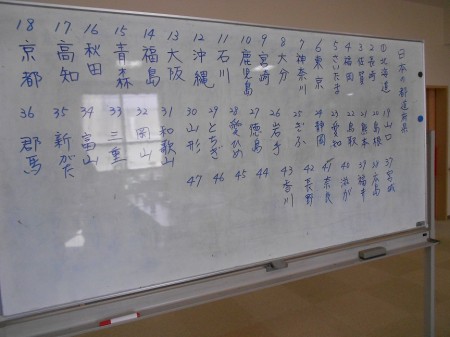 日本の都道府県
① 北海道
2 長崎
3 佐賀
4 福岡
5 さいたま
6 東京
7 神奈川
8 大分
9 宮崎
10 鹿児島
11 石川
12 沖縄
13 大阪
14 福島
15 青森
16 秋田
17 高知
18 京都
19 山口
20 島根
21 熊本
22 鳥取
23 愛知
24 静岡
25 ぎふ
26 岩手
27 徳島
28 愛ひめ
29 とちぎ
30 山形
31 和歌山
32 岡山
33 三重
34 富山
35 新がた
36 郡馬
37 宮城
38 広島
39 福井
40 滋が
41 奈良
42 長野
43 香川
44
45
46
47